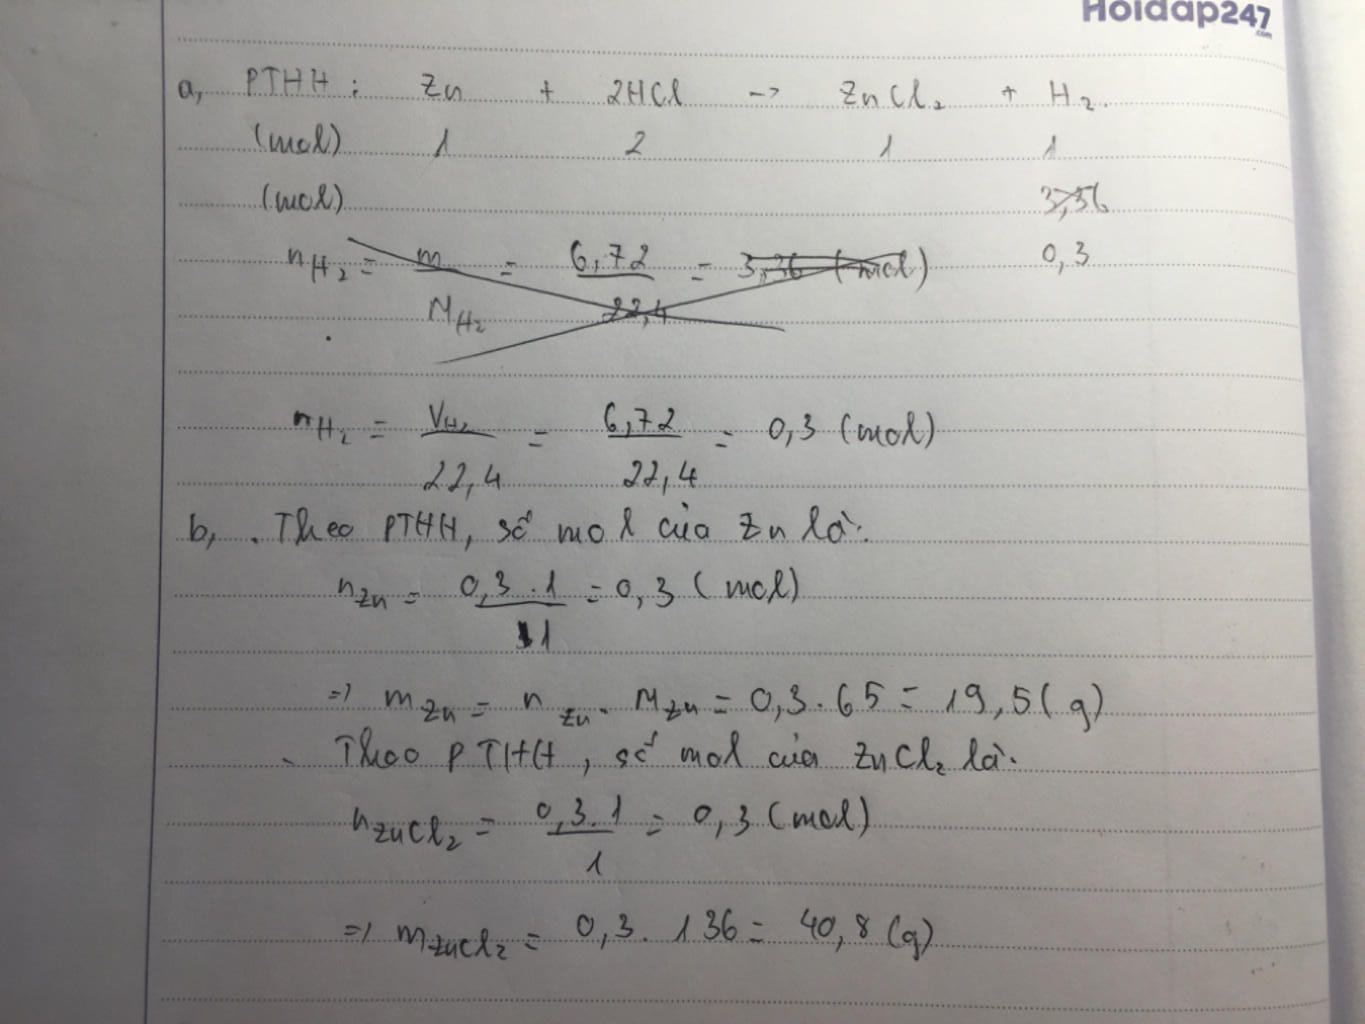 Hoidap247
.com
a, PTHH : Zn + 2HCl -> ZnCl₂ + H₂.
(mol) 1 2 1 1
(mol) 3,36
nH₂ = m/MH₂ = 6,72/22,4 = 3,36 (mol) 0,3
nH₂ = VH₂/22,4 = 6,72/22,4 = 0,3 (mol)
b, . Theo PTHH, số mol của Zn là:
nZn = 0,3 . 1/1 = 0,3 (mol)
=> mZn = nZn . MZn = 0,3 . 65 = 19,5 (g)
. Theo PTHH, số mol của ZnCl₂ là:
nZnCl₂ = 0,3 . 1/1 = 0,3 (mol)
=> mZnCl₂ = 0,3 . 136 = 40,8 (g)